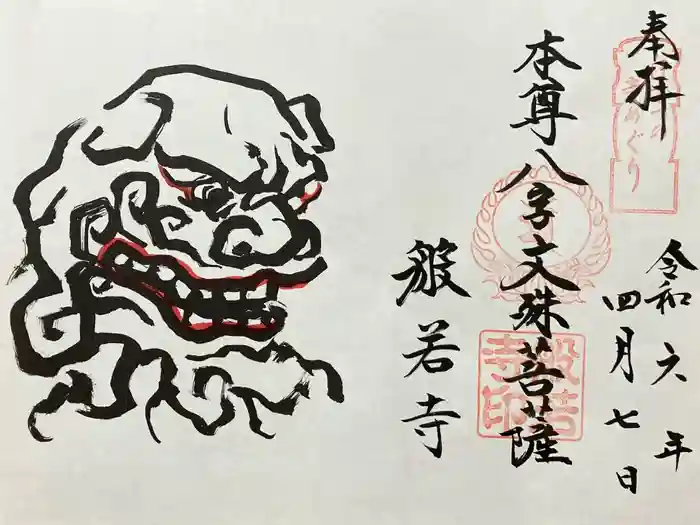 奉拝
令和六年
四月七日
本尊八字文殊菩薩
般若寺
般若
寺印